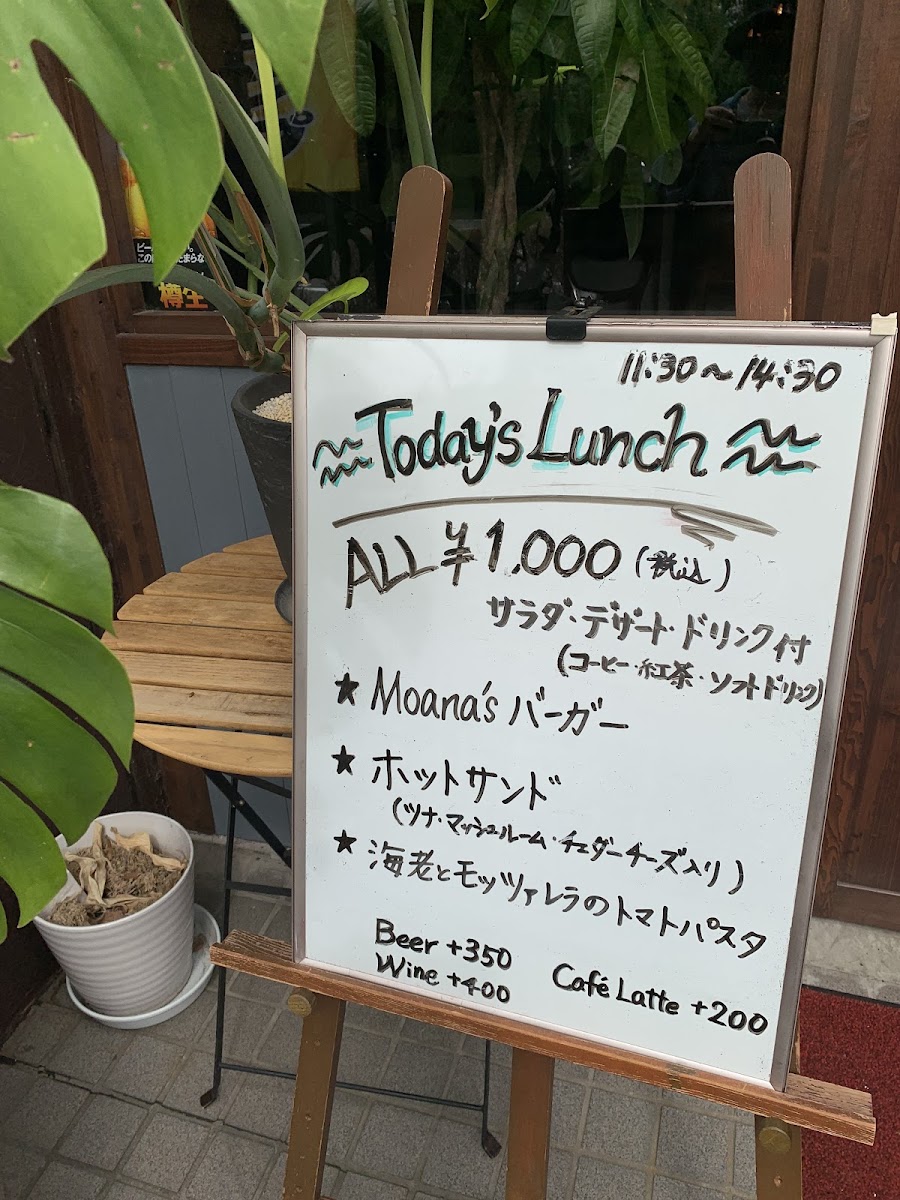 11:30～14:30
Today's Lunch
ALL ¥1,000 (税込)
サラダ・デザート・ドリンク付
(コーヒー・紅茶・ソフトドリンク)
★ Moana's バーガー
★ ホットサンド
(ツナ・マッシュルーム・チェダーチーズ入り)
★ 海老とモッツァレラのトマトパスタ
Beer +350
Wine +400
Café Latte +200
樽生